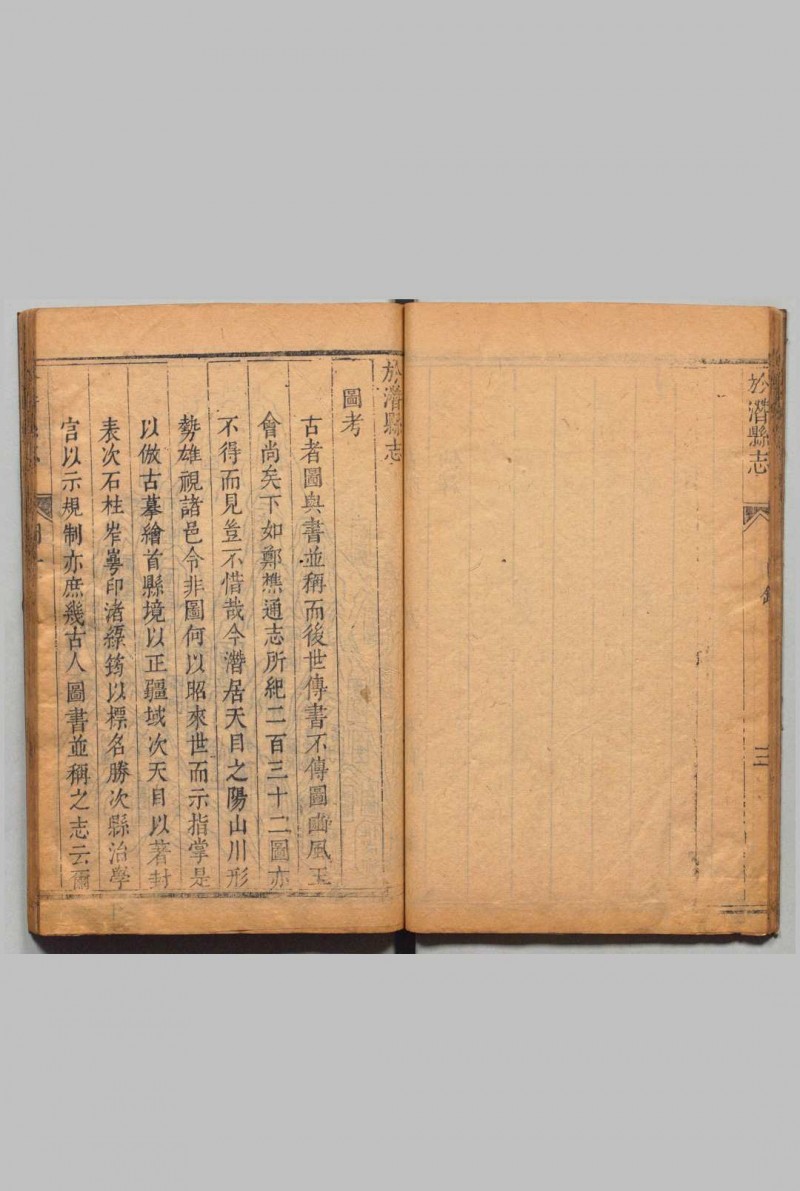 於潛縣志
三
於潛縣志
圖考
古者圖與書並稱而後世傳書不傳圖豳風王
會尚矣下如鄭樵通志所紀二百三十二圖亦
不得而見豈不惜哉今潛居天目之陽山川形
勢雄視諸邑令非圖何以昭來世而示指掌是
以倣古摹繪首縣境以正疆域次天目以著封
表次石柱岝崿印渚縹筠以標名勝次縣治學
宫以示規制亦庶幾古人圖書並稱之志云爾